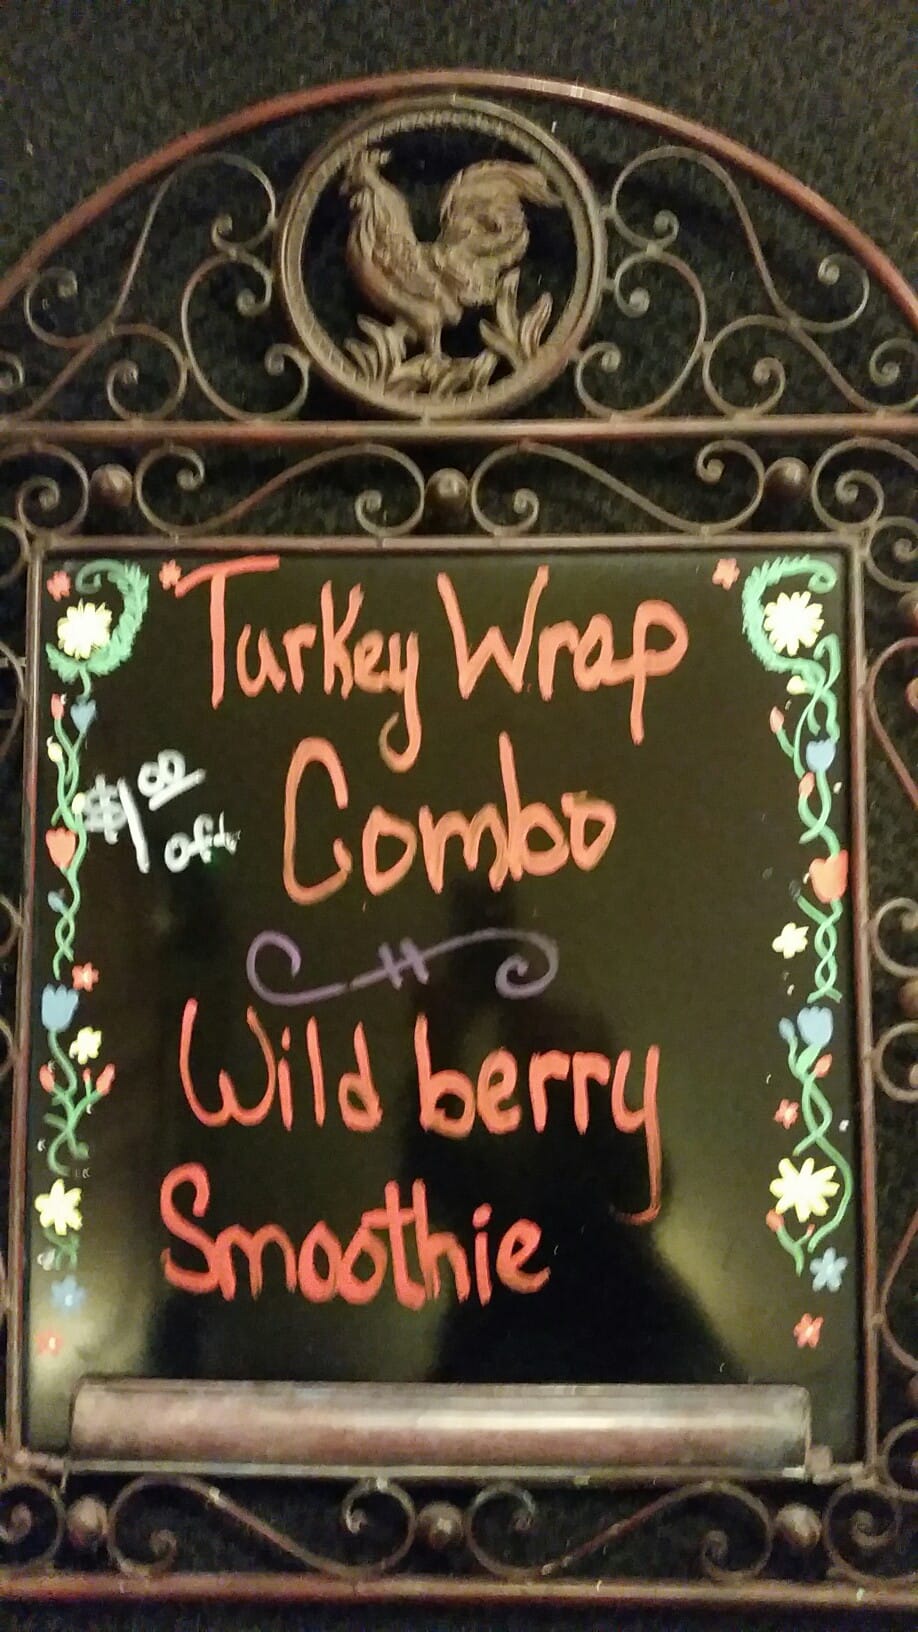 Turkey Wrap
$1.00 off Combo
Wild berry
Smoothie